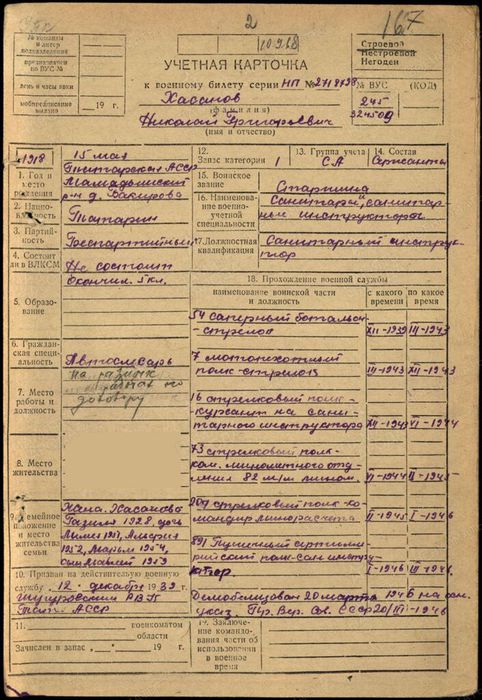 2
167
10.9.68
№ команды
УЧЕТНАЯ КАРТОЧКА
к военному билету серии НП № 2718798
Хасанов
(фамилия)
Николай Григорьевич
(имя и отчество)
Строевой
Нестроевой
Негоден
№ ВУС (КОД)
245
день и часы явки
19 г.
1918
15 мая
Татарская АССР
Мамадышский
р-н д. Бакирово
1. Год и место рождения
2. Национальность
Татарин
3. Партийность
Беспартийный
4. Состоит ли в ВЛКСМ
Не состоит
5. Образование
Окончил 5 кл.
6. Гражданская специальность
Автослесарь
7. Место работы и должность
на разных
работах по
договору
8. Место жительства
9. Семейное положение и место жительства семьи
Жена Хасанова
1928, дочь
1951,
1952, 1954,
сын 1959
10. Призван на действительную военную
службу 12 декабря 1939 г.
РВК
Тат. АССР
11. военкоматом
области
Зачислен в запас 19 г.
12. Запас категории 1
13. Группа учета СА
14. Состав Сержанты
15. Воинское звание Старшина
16. Наименование военно-учетной специальности
Санитары, санитарные инструкторы
17. Должностная квалификация
Санитарный инструктор
18. Прохождение военной службы
наименование воинской части и должность
с какого времени
по какое время
54 саперный батальон-
стрелок XII-1939 III-1943
7 мотопехотный
полк-стрелок III-1943
16 стрелковый полк-
курсант на санитарного инструктора VI-1944
73 стрелковый полк-
ком. минометного отделения 82 м/м мином. VI-1944 II-1945
209 стрелковый полк-командир минрасчета II-1945 I-1946
891 Пушечный артиллерийский полк-сан. инструктор I-1946 III-1946
Демобилизован 20 марта 1946 на осн.
указ. Пр. Вер. Сов. СССР 20/III-1946
19. Заключение командования части об использовании в военное время